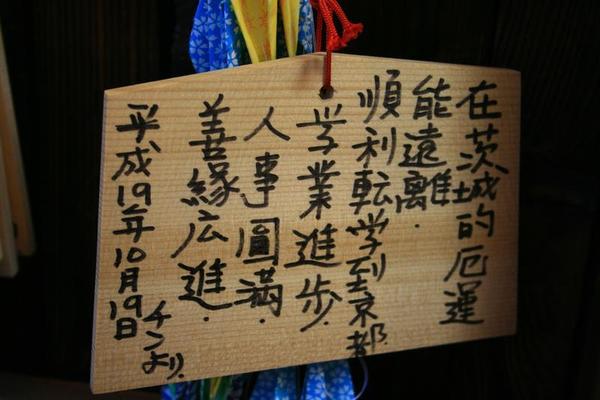 在茨城的厄運
能遠離.
順利転学到京都
学業進歩.
人事圓滿.
善緣広進.
平成19年10月19日
チンより.